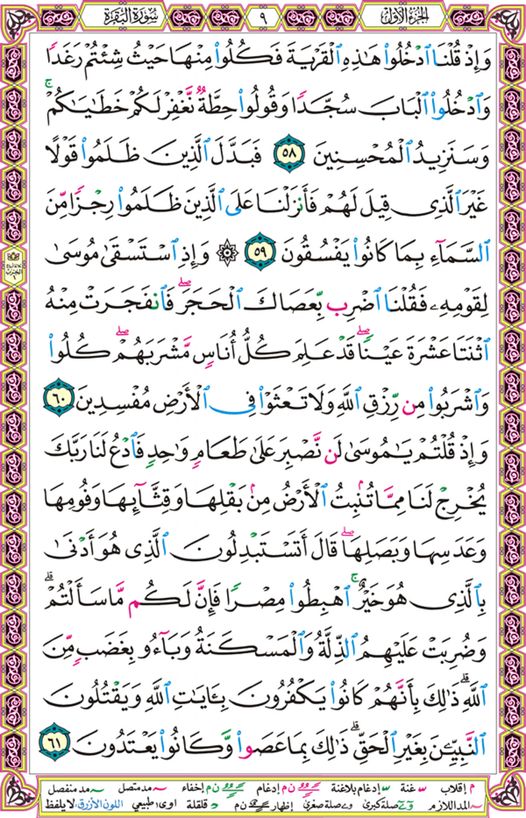 الجزء الأول
٩
سورة البقرة
وَإِذْ قُلْنَا ٱدْخُلُوا۟ هَٰذِهِ ٱلْقَرْيَةَ فَكُلُوا۟ مِنْهَا حَيْثُ شِئْتُمْ رَغَدًا
وَٱدْخُلُوا۟ ٱلْبَابَ سُجَّدًا وَقُولُوا۟ حِطَّةٌ نَّغْفِرْ لَكُمْ خَطَٰيَٰكُمْ ۚ
وَسَنَزِيدُ ٱلْمُحْسِنِينَ ٥٨ فَبَدَّلَ ٱلَّذِينَ ظَلَمُوا۟ قَوْلًا
غَيْرَ ٱلَّذِى قِيلَ لَهُمْ فَأَنزَلْنَا عَلَى ٱلَّذِينَ ظَلَمُوا۟ رِجْزًا مِّنَ
ٱلسَّمَآءِ بِمَا كَانُوا۟ يَفْسُقُونَ ٥٩ ۞ وَإِذِ ٱسْتَسْقَىٰ مُوسَىٰ
لِقَوْمِهِۦ فَقُلْنَا ٱضْرِب بِّعَصَاكَ ٱلْحَجَرَ ۖ فَٱنفَجَرَتْ مِنْهُ
ٱثْنَتَا عَشْرَةَ عَيْنًا ۖ قَدْ عَلِمَ كُلُّ أُنَاسٍ مَّشْرَبَهُمْ ۖ كُلُوا۟
وَٱشْرَبُوا۟ مِن رِّزْقِ ٱللَّهِ وَلَا تَعْثَوْا۟ فِى ٱلْأَرْضِ مُفْسِدِينَ ٦٠
وَإِذْ قُلْتُمْ يَٰمُوسَىٰ لَن نَّصْبِرَ عَلَىٰ طَعَامٍ وَٰحِدٍ فَٱدْعُ لَنَا رَبَّكَ
يُخْرِجْ لَنَا مِمَّا تُنۢبِتُ ٱلْأَرْضُ مِنۢ بَقْلِهَا وَقِثَّآئِهَا وَفُومِهَا
وَعَدَسِهَا وَبَصَلِهَا ۖ قَالَ أَتَسْتَبْدِلُونَ ٱلَّذِى هُوَ أَدْنَىٰ
بِٱلَّذِى هُوَ خَيْرٌ ۚ ٱهْبِطُوا۟ مِصْرًا فَإِنَّ لَكُم مَّا سَأَلْتُمْ ۗ
وَضُرِبَتْ عَلَيْهِمُ ٱلذِّلَّةُ وَٱلْمَسْكَنَةُ وَبَآءُو بِغَضَبٍ مِّنَ
ٱللَّهِ ۗ ذَٰلِكَ بِأَنَّهُمْ كَانُوا۟ يَكْفُرُونَ بِـَٔايَٰتِ ٱللَّهِ وَيَقْتُلُونَ
ٱلنَّبِيِّـۧنَ بِغَيْرِ ٱلْحَقِّ ۗ ذَٰلِكَ بِمَا عَصَوا۟ وَّكَانُوا۟ يَعْتَدُونَ ٦١
م إقلاب غنة إدغام بلاغنة ن م إدغام ن م إخفاء مد متصل مد منفصل
المد اللازم صلة كبرى صلة صغرى إظهار ن م قلقلة اوى طبيعي اللون الأزرق لا يلفظ